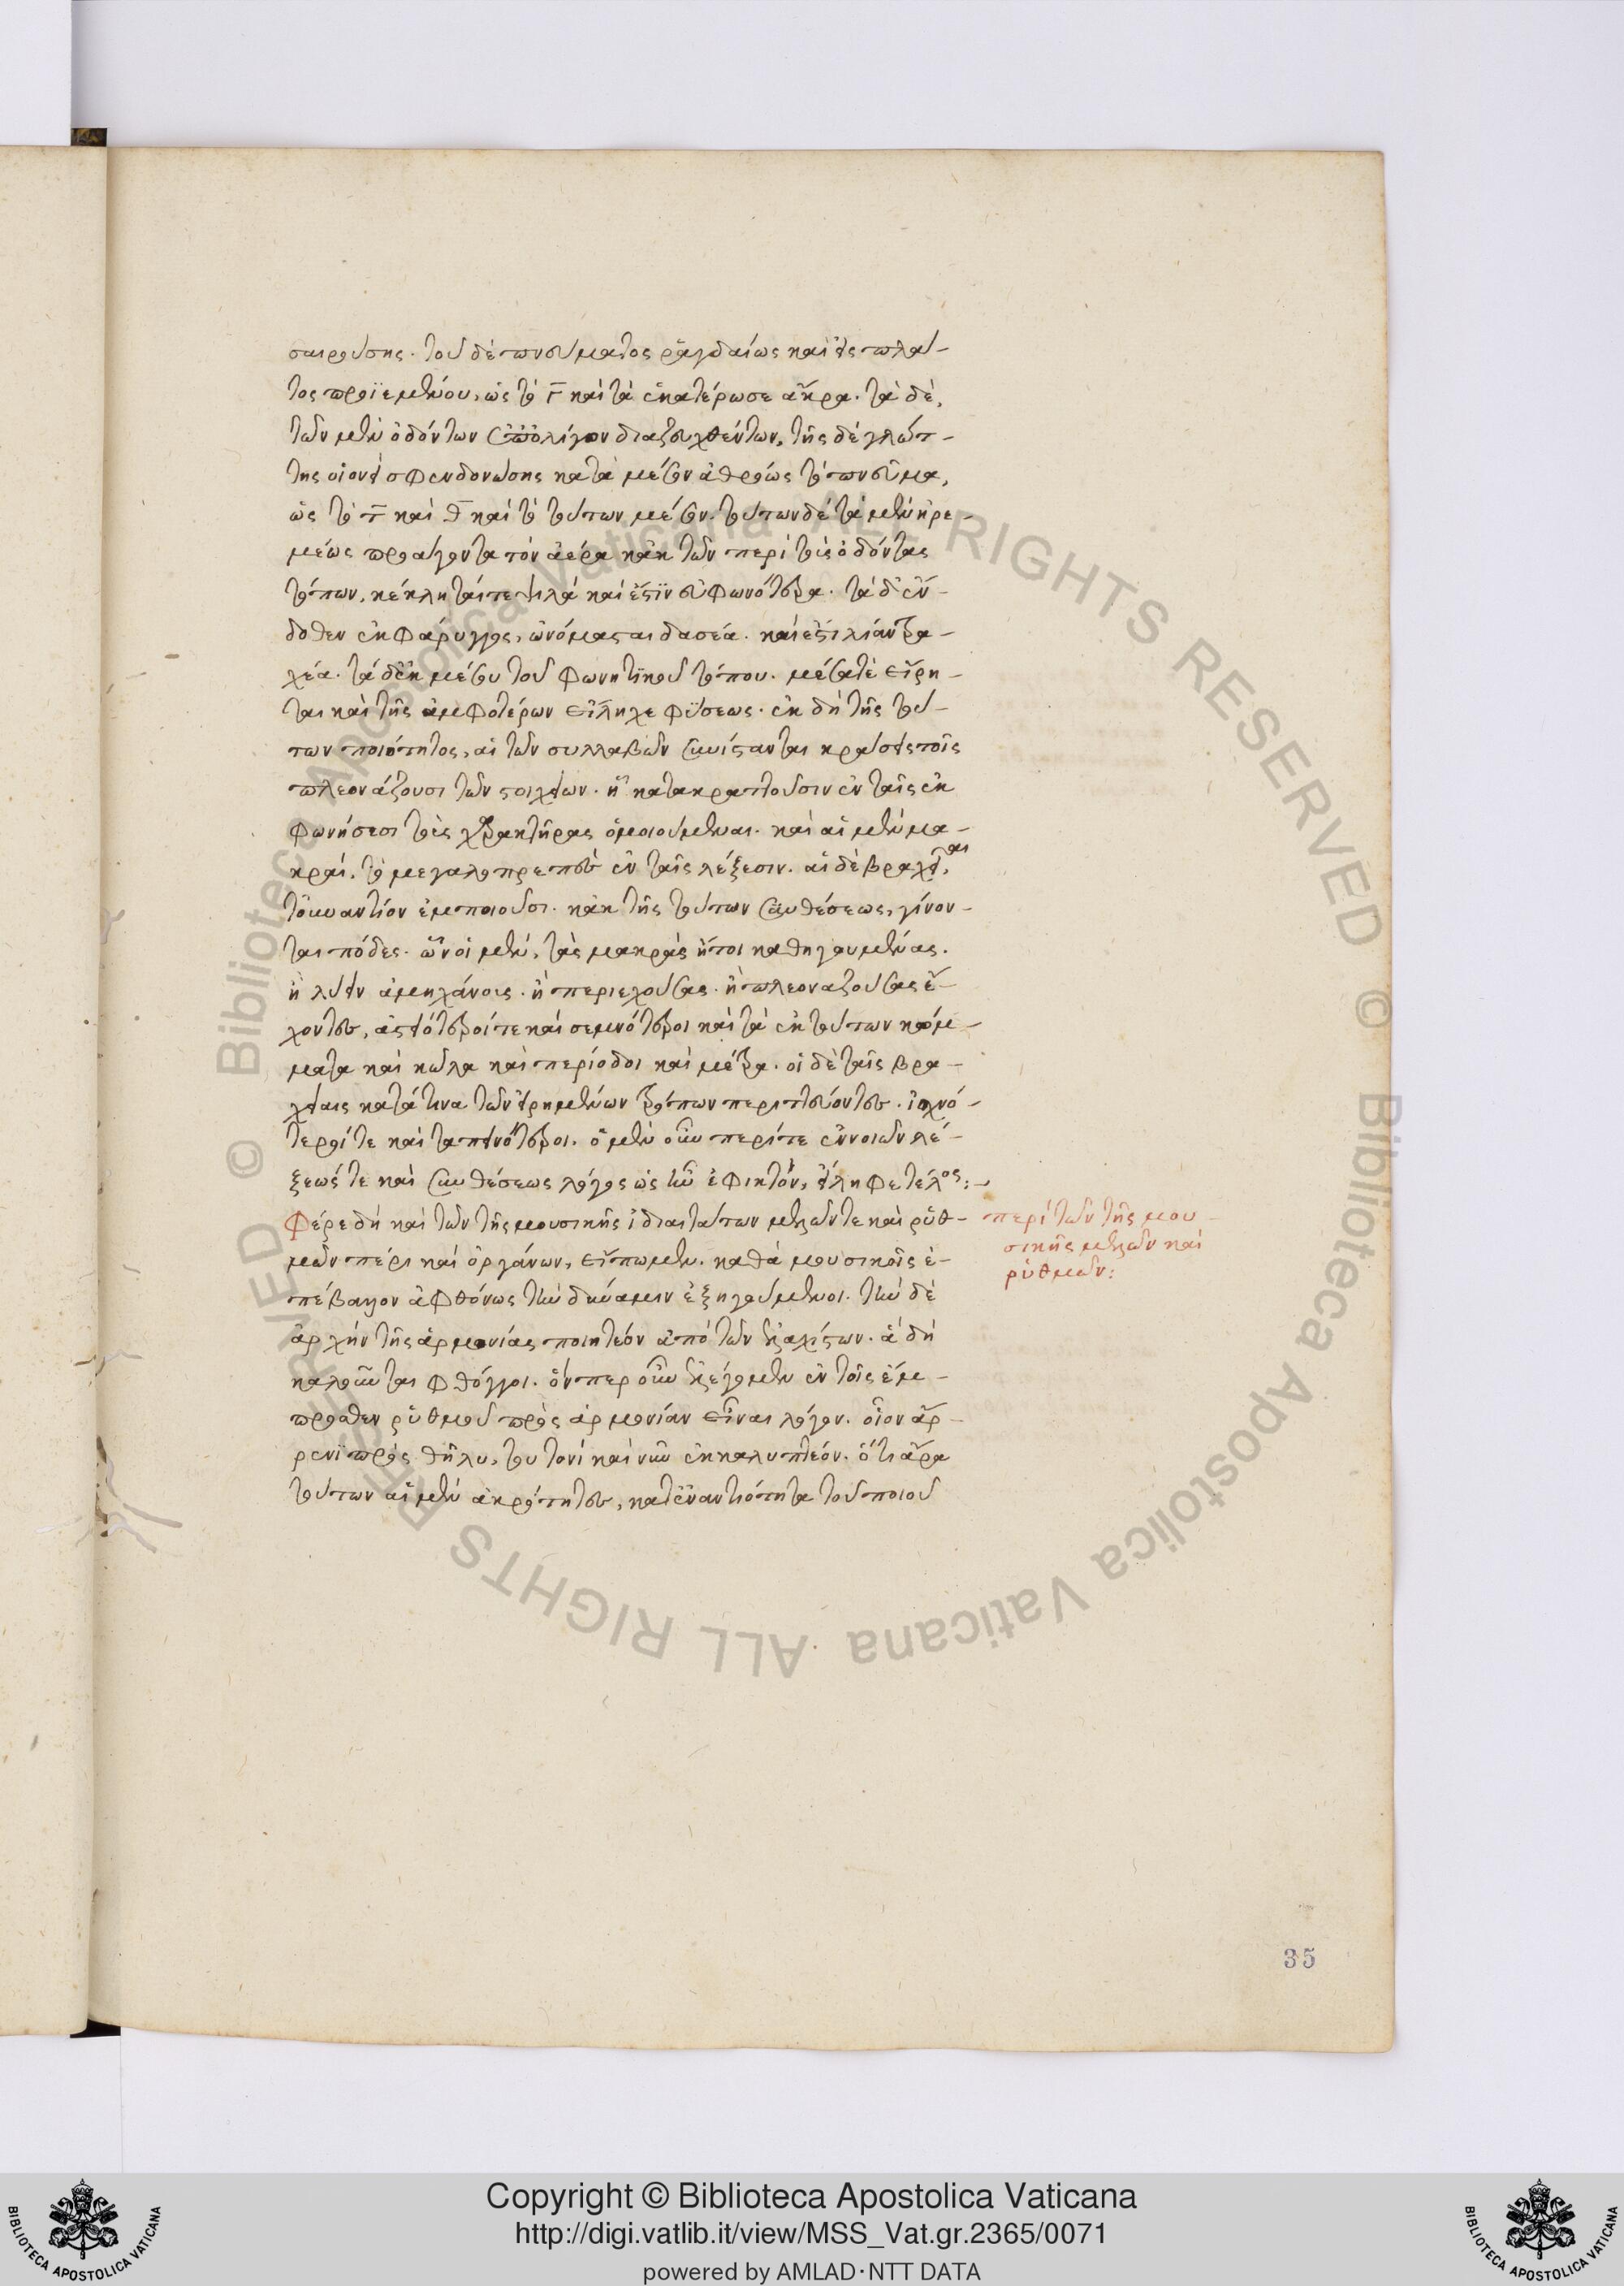 σαιρούσης. τοῦ δὲ πνεύματος ῥαγδαίως καὶ εἰς πλά-
τος προϊεμένου, ὡς τὸ γ̄ καὶ τὰ ἑκατέρωσε ἄκρα. τὰ δὲ,
τῶν μὲν ὀδόντων ἐπ' ὀλίγον διαζευχθέντων, τῆς δὲ γλώτ-
της οἱονεὶ σφενδονώσης κατὰ μέσον ἀθρόως τὸ πνεῦμα,
ὡς τὸ τ̄ καὶ θ̄ καὶ τὸ τούτων μέσον. τούτων δὲ τὰ μὲν ἠρε-
μέως προάγοντα τὸν ἀέρα κἀκ τῶν περὶ τοὺς ὀδόντας
τόπων, κέκληταί τε ψιλὰ καὶ ἔστϊν εὐφωνότερα. τὰ δ' ἔν-
δοθεν ἐκ φάρυγγος, ὠνόμασται δασέα. καὶ ἐστὶ λίαν τρα-
χέα. τὰ δ' ἐκ μέσου τοῦ φωνητϊκοῦ τόπου. μέσα τὲ εἴρη-
ται καὶ τῆς ἀμφοτέρων εἴληχε φύσεως. ἐκ δὴ τῆς τού-
των ποιότητος, αἱ τῶν συλλαβῶν συνίστανται κράσεις τοῖς
πλεονάζουσι τῶν στοιχείων. ἢ κατακρατοῦσιν ἐν ταῖς ἐκ
φωνήσεσι τοὺς χαρακτῆρας ὁμοιούμεναι. καὶ αἱ μὲν μα-
κραὶ, τὸ μεγαλοπρεπὲς ἐν ταῖς λέξεσιν. αἱ δὲ βραχεῖαι,
τοὐναντίον ἐμποιοῦσι. κἀκ τῆς τούτων συνθέσεως, γίνον-
ται πόδες. ὧν οἱ μὲν, τὰς μακρὰς ἤτοι καθηγουμένας.
ἢ λυειν ἀμηχάνοις. ἢ περιεχούσας. ἢ πλεοναζούσας ἔ-
χοντες, ἀστειότεροί τε καὶ σεμνότεροι καὶ τὰ ἐκ τούτων κόμ-
ματα καὶ κῶλα καὶ περίοδοι καὶ μέτρα. οἱ δὲ ταῖς βρα-
χείαις κατά τινα τῶν εἰρημένων τρόπων περιττεύοντες. ἰσχνό-
τεροί τε καὶ ταπεινότεροι. ὁ μὲν οὖν περί τε ἐννοιῶν λέ-
ξεώς τε καὶ συνθέσεως λόγος ὡς ἦν ἐφικτὸν, εἴληφε τέλος:-
Φέρε δὴ καὶ τῶν τῆς μουσικῆς ἰδιαιτάτων μελῶν τε καὶ ῥυθ-
μῶν πέρι καὶ ὀργάνων, εἴπωμεν. καθὰ μουσικοῖς ἐ-
πέβαλλον ἀφθόνως τὴν δύναμιν ἐξηγούμενοι. τὴν δὲ
ἀρχὴν τῆς ἁρμονίας ποιητέον ἀπὸ τῶν ἐλαχίστων. ἃ δὴ
καλοῦνται φθόγγοι. ὅνπερ οὖν ἐλέγομεν ἐν τοῖς ἔμ-
προσθεν ῥυθμοῦ πρὸς ἁρμονίαν εἶναι λόγον. οἷον ἄρ-
ρενϊ πρὸς θῆλυ, τουτονὶ καὶ νῦν ἐκκαλυπτέον. ὅτι ἄρα
τούτων αἱ μὲν ἀκρότητες, κατ' ἐναντιότητα τοῦ ποιοῦ
περὶ τῶν τῆς μου-
σικῆς μελῶν καὶ
ῥυθμῶν:
35
© Biblioteca Apostolica Vaticana. ALL RIGHTS RESERVED
© Biblioteca Apostolica Vaticana. ALL RIGHTS RESERVED
Copyright © Biblioteca Apostolica Vaticana
http://digi.vatlib.it/view/MSS_Vat.gr.2365/0071
powered by AMLAD·NTT DATA
BIBLIOTECA APOSTOLICA VATICANA
BIBLIOTECA APOSTOLICA VATICANA